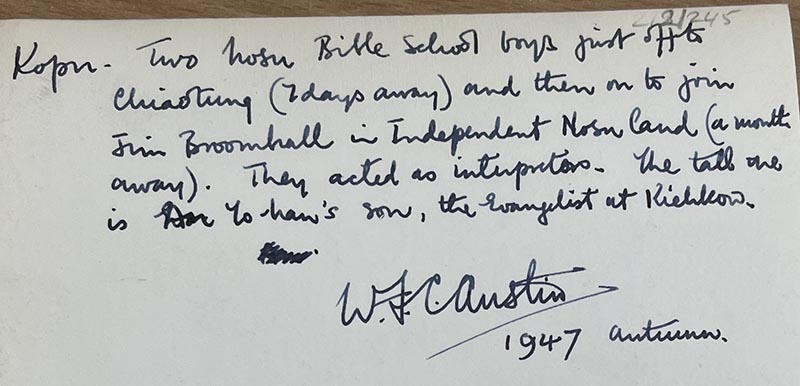 2/2/245
Kopu - Two Nosu Bible School boys just off to
Chiaotung (7 days away) and then on to join
Jim Broomhall in Independent Nosu Land (a month
away). They acted as interpretors. The tall one
is Yo-han's son, the Evangelist at Kiehkow.
W.F.C. Austin
1947 autumn.